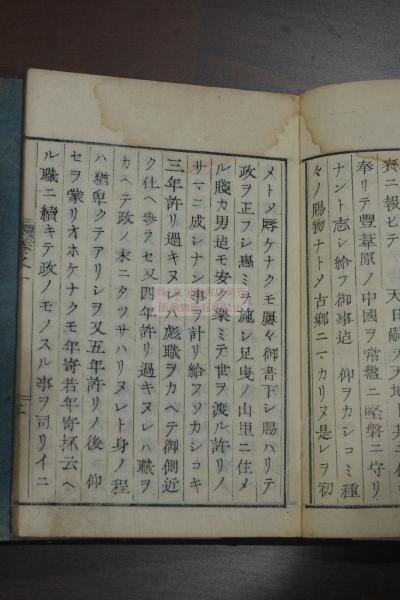 賚ニ報セテ 天日嗣天天地ト共ニ
奉リテ豐葦原ノ中國ヲ常盤ニ堅磐ニ守リ
ナント志シ給フ御事迠 仰ヲカシコミ種
々ノ賜物ナトメ古鄉ニマカリヌ是レヲ初
メトメ辱ケナクモ屡々御書下シ賜ハリテ
政ヲ正フシ惠ミヲ施シ足曳ノ山里ニ住メ
ル賤カ男迠モ安ク樂ミテ世ヲ渡ル許リノ
サマニ成シナン事ヲ計リ給フソカシコキ
三年許リ過キヌレハ彪職ヲカヘテ御側近
ク仕ヘ參ラセ又四年許リ過キヌレハ職ヲ
カヘテ政ノ末ニタツサハリヌレト身ノ程
ハ猶卑クテアリシヲ又五年許リノ後 仰
セヲ蒙リオホケナクモ年寄若年寄抔云ヘ
ル職ニ續キテ政ノモノスル事ヲ司リイニ